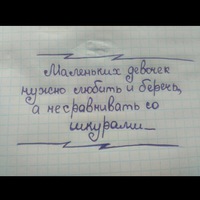 Маленьких девочек
нужно любить и беречь,
а не сравнивать со
шкурами_